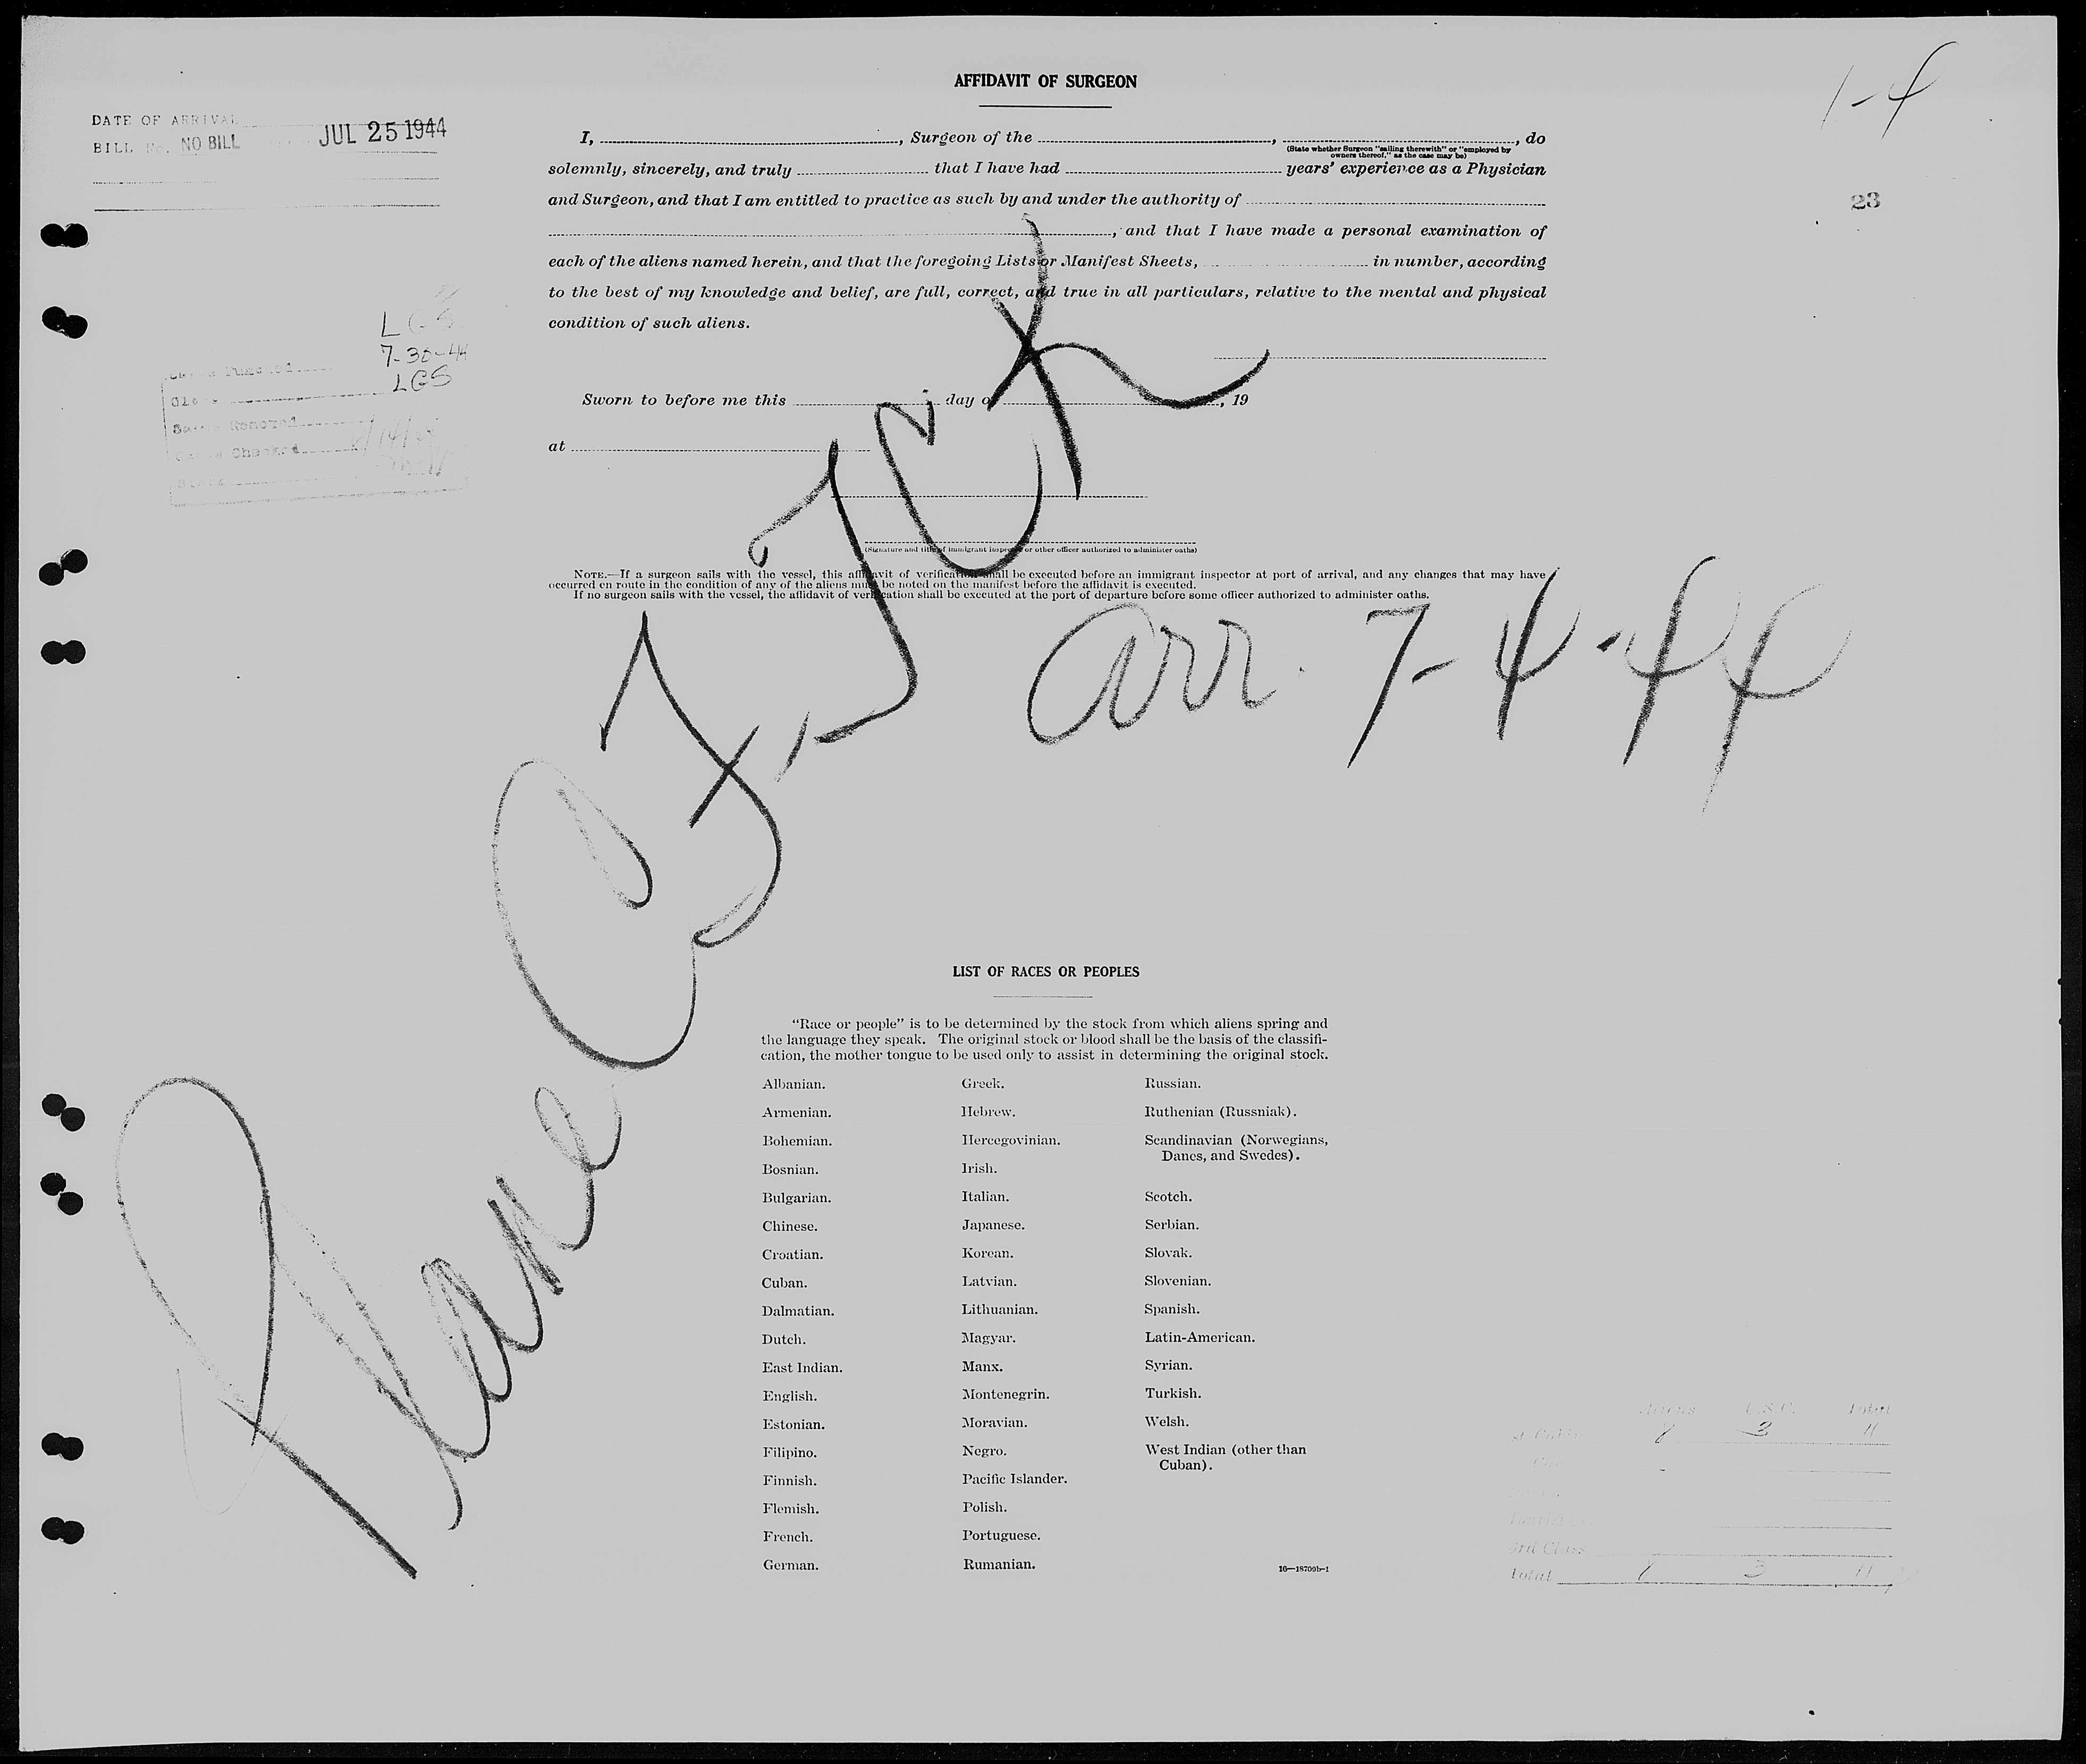 AFFIDAVIT OF SURGEON
1-4
DATE OF ARRIVAL JUL 25 1944
BILL No. NO BILL
23
I, , Surgeon of the , , do
(State whether Surgeon "sailing therewith" or "employed by owners thereof," as the case may be)
solemnly, sincerely, and truly that I have had years' experience as a Physician
and Surgeon, and that I am entitled to practice as such by and under the authority of
, and that I have made a personal examination of
each of the aliens named herein, and that the foregoing Lists or Manifest Sheets, in number, according
to the best of my knowledge and belief, are full, correct, and true in all particulars, relative to the mental and physical
condition of such aliens.
LGS
7-30-44
LGS
Sworn to before me this day of , 19
at
(Signature and title of immigrant inspector or other officer authorized to administer oaths)
NOTE.—If a surgeon sails with the vessel, this affidavit of verification shall be executed before an immigrant inspector at port of arrival, and any changes that may have
occurred en route in the condition of any of the aliens must be noted on the manifest before the affidavit is executed.
If no surgeon sails with the vessel, the affidavit of verification shall be executed at the port of departure before some officer authorized to administer oaths.
Plane
arr. 7-4-44
LIST OF RACES OR PEOPLES
"Race or people" is to be determined by the stock from which aliens spring and
the language they speak. The original stock or blood shall be the basis of the classifi-
cation, the mother tongue to be used only to assist in determining the original stock.
Albanian. Greek. Russian.
Armenian. Hebrew. Ruthenian (Russniak).
Bohemian. Hercegovinian. Scandinavian (Norwegians,
Danes, and Swedes).
Bosnian. Irish.
Bulgarian. Italian. Scotch.
Chinese. Japanese. Serbian.
Croatian. Korean. Slovak.
Cuban. Latvian. Slovenian.
Dalmatian. Lithuanian. Spanish.
Dutch. Magyar. Latin-American.
East Indian. Manx. Syrian.
English. Montenegrin. Turkish.
Estonian. Moravian. Welsh.
Filipino. Negro. West Indian (other than
Cuban).
Finnish. Pacific Islander.
Flemish. Polish.
French. Portuguese.
German. Rumanian.
16—18709b-1
Aliens U.S.C. Total
8 3 11
3rd Class
Total 8 3 11